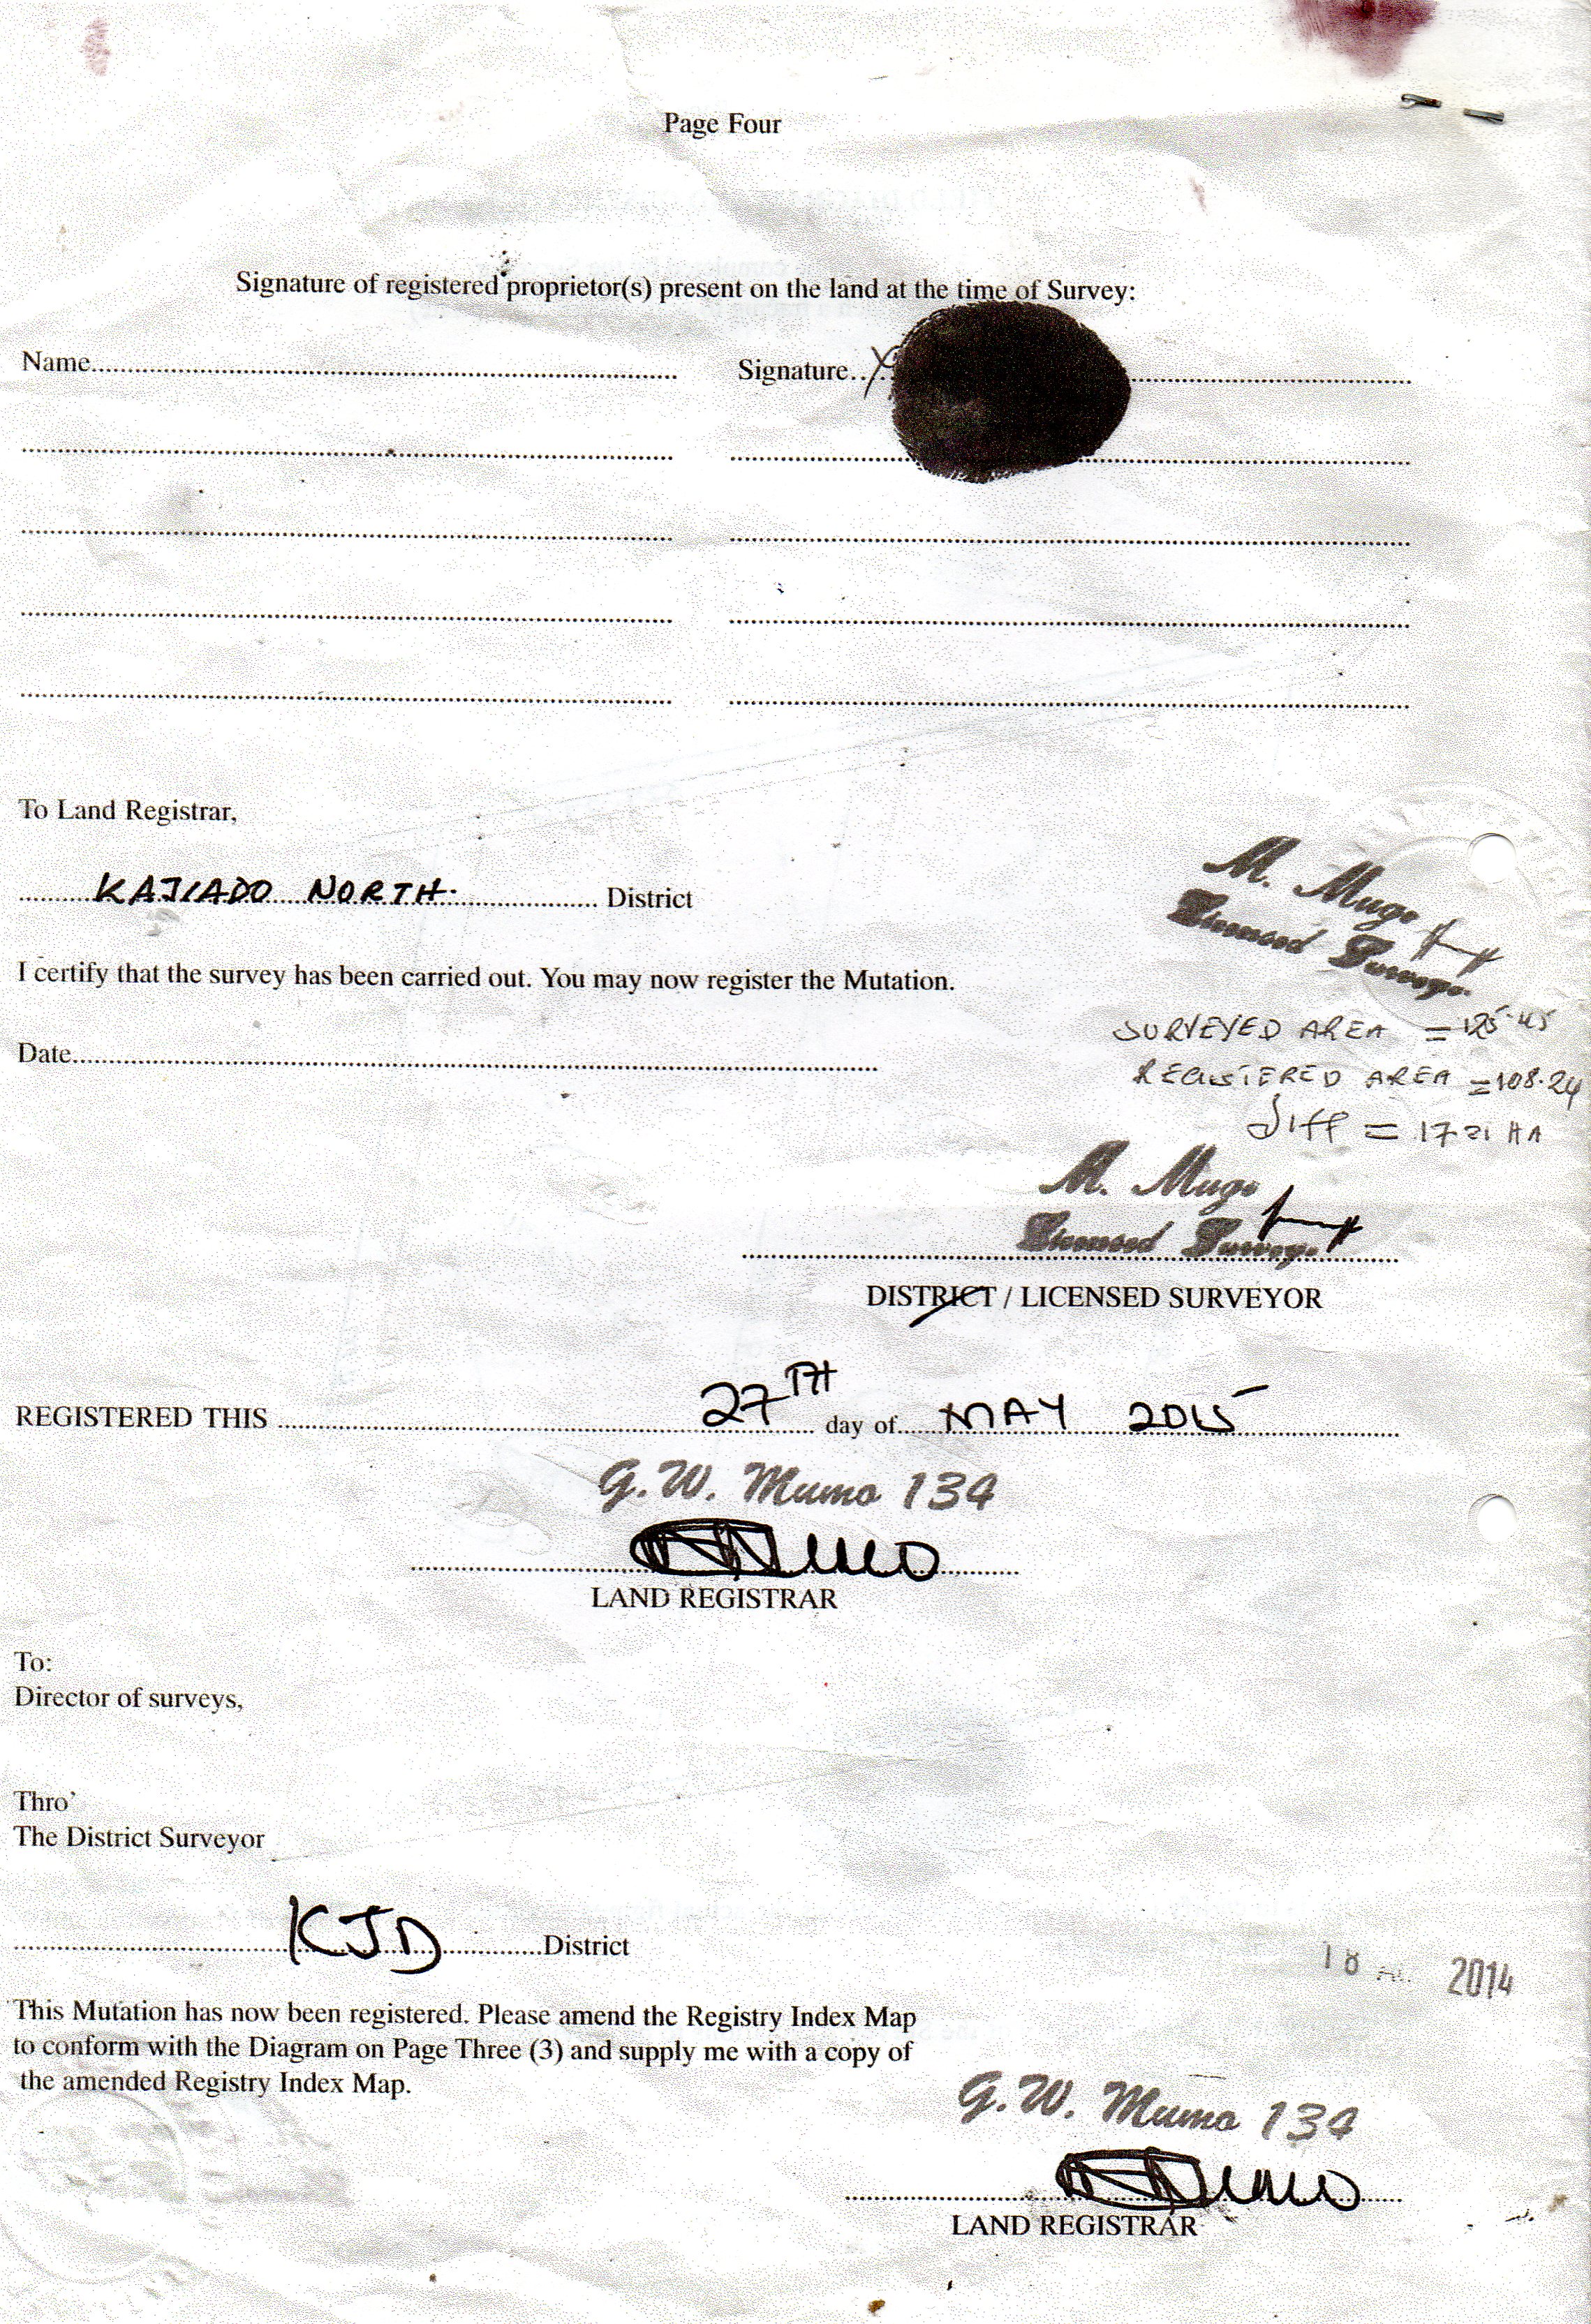 Page Four
Signature of registered proprietor(s) present on the land at the time of Survey:
Name.......... Signature.. X
To Land Registrar,
KAJIADO NORTH. District
M. Mugo
Licensed Surveyor
I certify that the survey has been carried out. You may now register the Mutation.
SURVEYED AREA = 125.45
Date..........
REGISTERED AREA = 108.24
diff = 17.21 HA
M. Mugo
Licensed Surveyor
DISTRICT / LICENSED SURVEYOR
REGISTERED THIS 27TH day of MAY 2015
G.W. Mumo 134
LAND REGISTRAR
To:
Director of surveys,
Thro'
The District Surveyor
KJD District
18 2014
This Mutation has now been registered. Please amend the Registry Index Map
to conform with the Diagram on Page Three (3) and supply me with a copy of
the amended Registry Index Map.
G.W. Mumo 134
LAND REGISTRAR